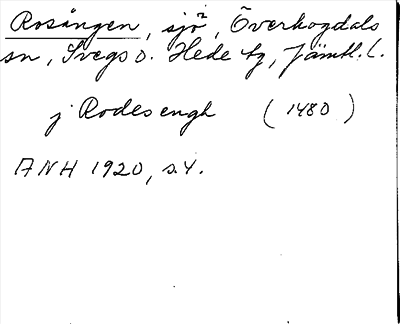 Rosången, sjö², Överhogdals
sn, Svegs o. Hede tg, Jämtl. l.
j Rodesengh (1480)
ANH 1920, s. 4.